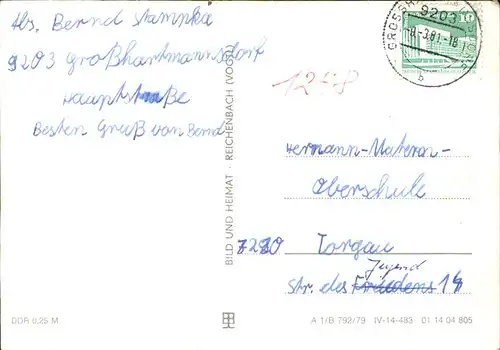 Abs. Bernd Stampka
9203 Großhartmannsdorf
Hauptstraße
Besten Gruß von Bernd
1248
Hermann-Matern-
Oberschule
7290 Torgau
Jugend
Str. des Friedens 14
BILD UND HEIMAT · REICHENBACH (VOGTL)
10
9203
-3.81-18
b
DDR 0,25 M
A 1/B 792/79 IV-14-483 01 14 04 805